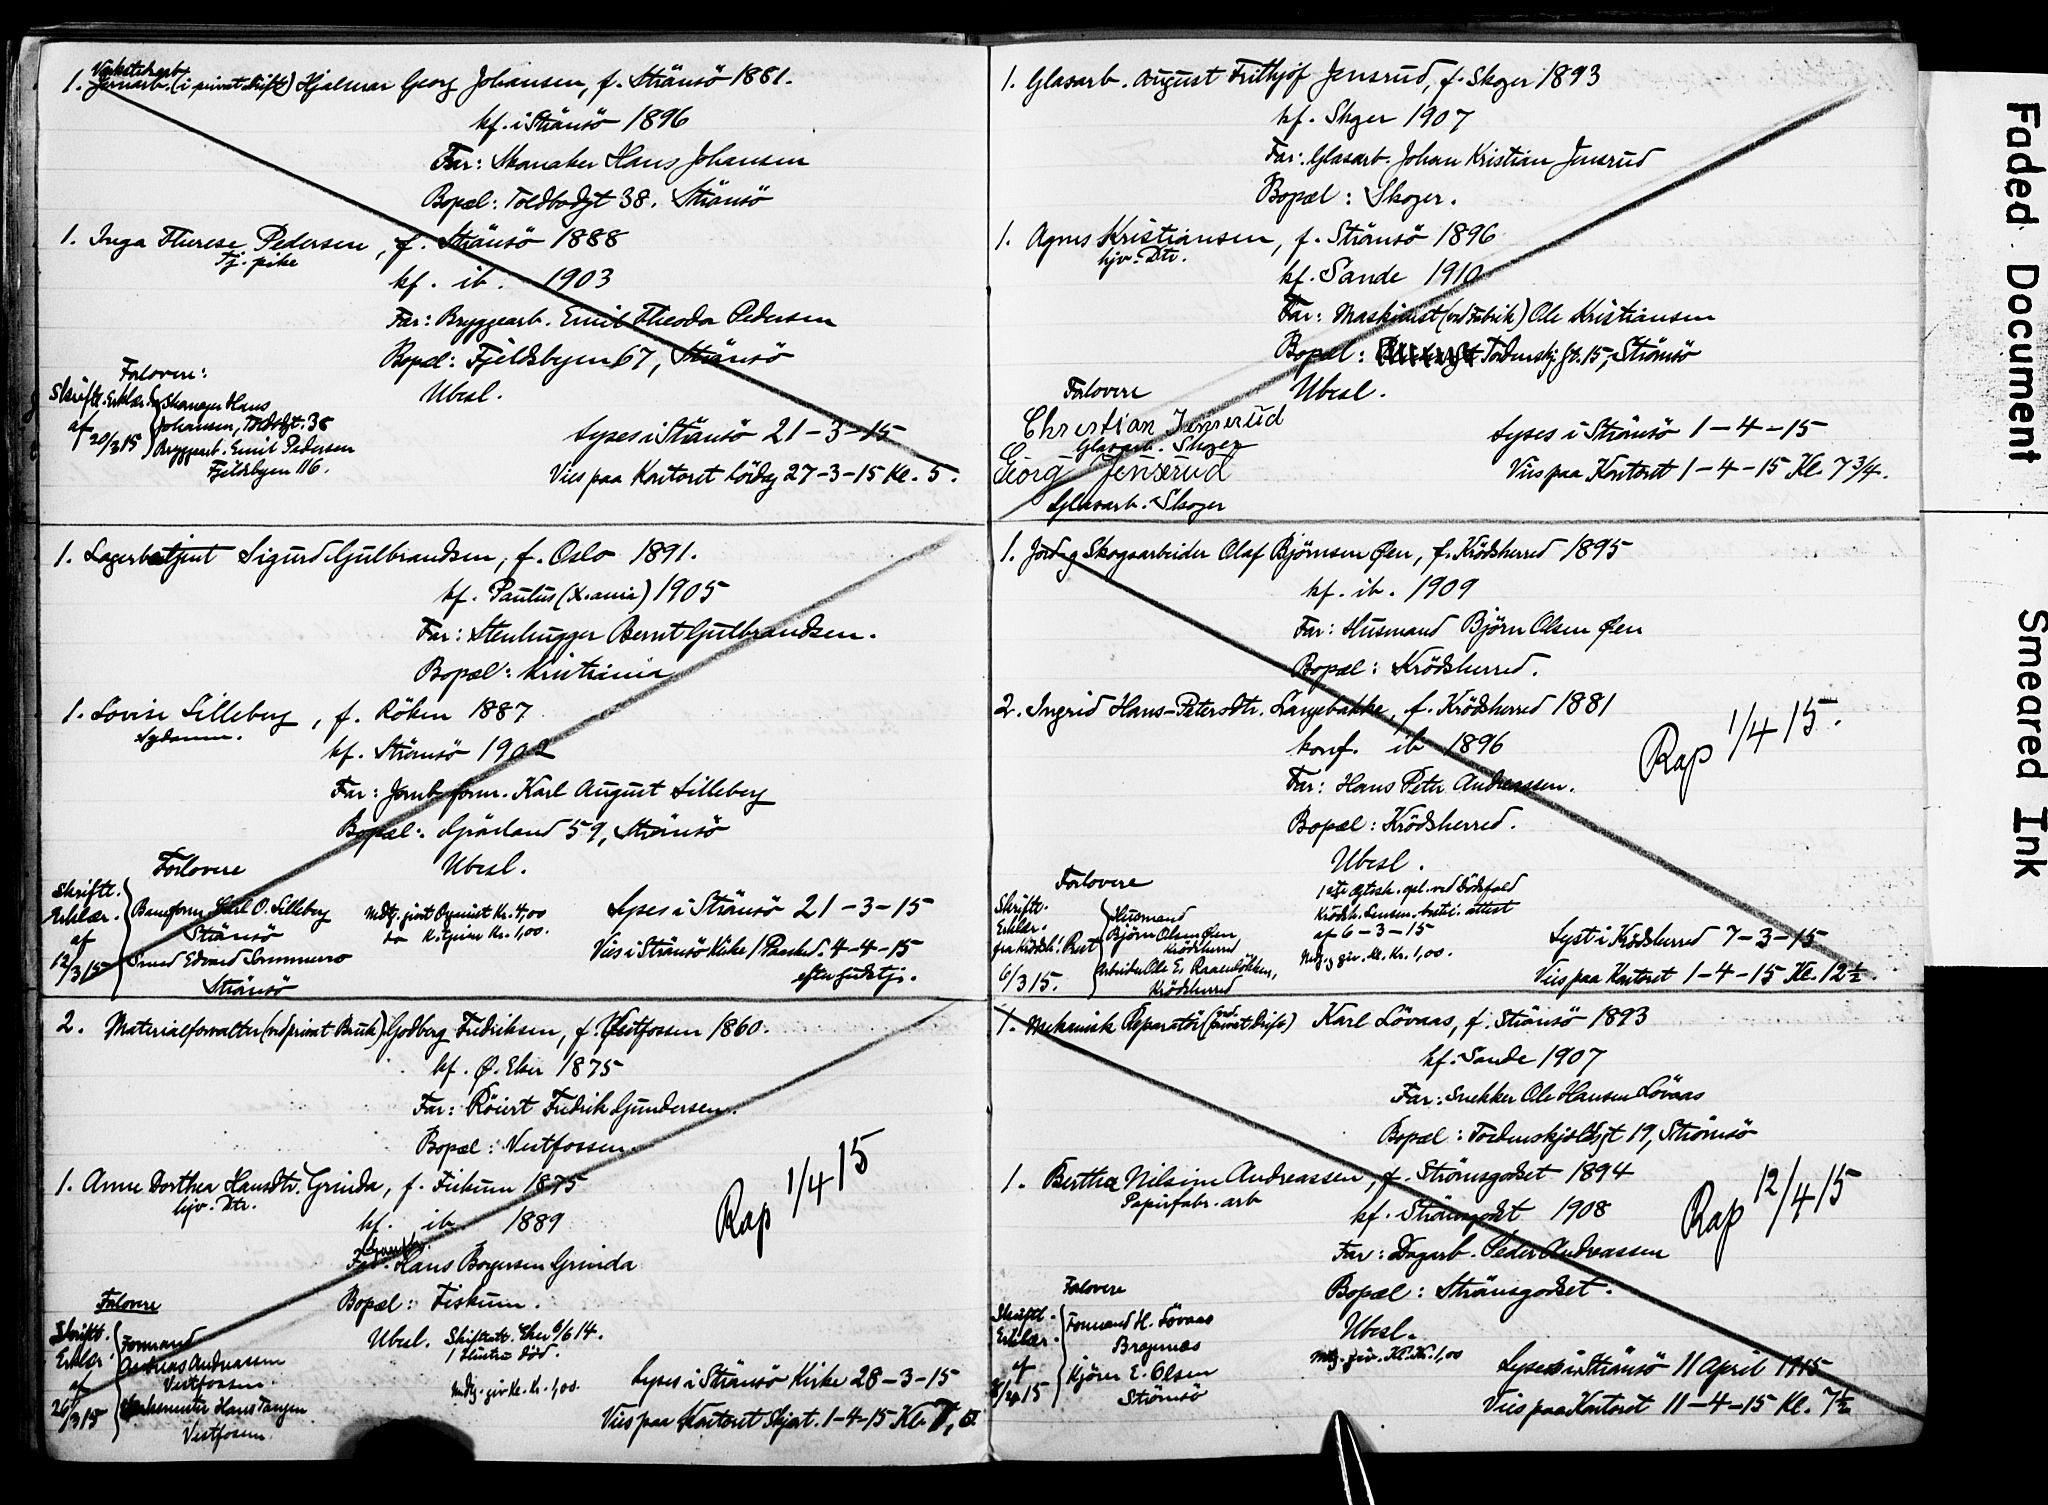 1. Jernarb. (i privat drift) Hjalmar Georg Johansen, f. Strömsö 1881.
kf. i Strömsö 1896
Far: Skomaker Hans Johansen
Bopæl: Toldbodgt 38. Strömsö
1. Inga Therese Pedersen, f. Strömsö 1888
Tj. pike
kf. ib. 1903
Far: Bryggearb. Emil Theodor Pedersen
Bopæl: Fjeldsbyen 67, Strömsö
Forlovere: Ubesl.
Skriftl. Erklær. Skomager Hans
af 20/3 15 Johansen, Toldbgt. 38
Bryggearb. Emil Pedersen
Fjeldsbyen 116.
Lyses i Strömsö 21-3-15
Vies paa Kontoret lördag 27-3-15 Kl. 5.
1. Lagerbetjent Sigurd Gulbrandsen, f. Oslo 1891.
kf. Paulus (X.ania) 1905
Far: Stenhugger Bernt Gulbrandsen.
Bopæl: Kristiania
1. Lovise Lilleberg, f. Röken 1887
Sydame.
kf. Strömsö 1902
Far: Jernb. form. Karl August Lilleberg
Bopæl: Grönland 59, Strömsö
Forlovere Ubesl.
Skriftl.
Erklær.
af
12/3 15
Baneform. Karl O. Lilleberg
Strömsö
Smed Edvard
Strömsö
Mdtg. Organist Kr. 4,00
Kr. 1,00.
Lyses i Strömsö 21-3-15
Vies i Strömsö Kirke 1 Paaskd. 4-4-15
efter gudstj.
2. Materialforvalter (ved privat Bruk) Godberg Fredriksen, f. Vestfossen 1860.
kf. Ø. Eker 1875
Far: Röiert Fredrik Gundersen.
Bopæl: Vestfossen
1. Anne Dorthea Hansdtr. Grinda, f. Fiskum 1875
hjv. Dtr.
kf. ib. 1889
Far: Hans Borgersen Grinda
Bopæl: Fiskum.
Rap 1/4 15
Forlovere
Ubesl. Skifteatt. Eker 6/6 14.
1 Hustru död.
Skriftl.
Erklær.
af
26/3 15
Formand
Andreas Andreassen
Vestfossen.
Verksmester Hans Tangen
Vestfossen.
Mdtg. giv. Kl. Kr. 1,00.
Lyses i Strömsö Kirke 28-3-15
Vies paa Kontoret Skjært. 1-4-15 Kl.
1. Glasarb. August Frithjof Jensrud, f. Skoger 1893
kf. Skger 1907
Far: Glasarb. Johan Kristian Jensrud
Bopæl: Skoger.
1. Agnes Kristiansen, f. Strömsö 1896
hjv. Dtr.
kf. Sande 1910
Far: Maskinist (ved Fabrik) Ole Kristiansen
Bopæl: Tordenskj. gt. 15, Strömsö
Forlovere Ubesl.
Christian Jenserud
Glasarb. Skoger
Georg Jenserud
Glasarb. Skoger
Lyses i Strömsö 1-4-15
Vies paa Kontoret 1-4-15 Kl. 7 3/4.
1. Jord og Skogsarbeider Olaf Björnsen Øen, f. Krödsherred 1895
kf. ib. 1909
Far: Husmand Björn Olsen Øen
Bopæl: Krödsherred.
2. Ingrid Hans-Petersdtr. Langebakke, f. Krödsherred 1881
konf. ib 1896
Far: Hans Peter Andreassen.
Bopæl: Krödsherred.
Rap 1/4 15.
Forlovere Ubesl.
1ste Ægtesk. opl. ved Dödsfald
Krödsh. Lensm. attest
af 6-3-15
Mdtg. giv. Kl. Kr. 1,00.
Skriftl.
Erklær.
fra Krödsh.
6/3 15.
Husmand
Björn Olsen Øen
Krödsherred
Arbeider Ole Er.
Krödsherred
Lyst i Krödsherred 7-3-15
Vies paa Kontoret 1-4-15 Kl. 12 1/2.
1. Mekanisk Reparatör (ved privat Drift) Karl Lövaas, f. Strömsö 1893
kf. Sande 1907
Far: Snekker Ole Hansen Lövaas
Bopæl: Tordenskjoldsgt 19, Strömsö
1. Berthea Nilsine Andreassen, f. Strömsgodset 1894
Papirfabr. arb
kf. i Strömsgodset 1908
Far: Dagarb. Peder Andreassen
Bopæl: Strömsgodset.
Rap 12/4 15
Forlovere Ubesl.
Skriftl.
Erklær.
af
8/4 15
Formand H. Lövaas
Bragernæs
Kjörer E. Olsen
Strömsö
Mdtg. giv. Kl. Kr. 1,00
Lyses i Strömsö 11 April 1915
Vies paa Kontoret 11-4-15 Kl. 7 1/2
Faded Document
Smeared Ink